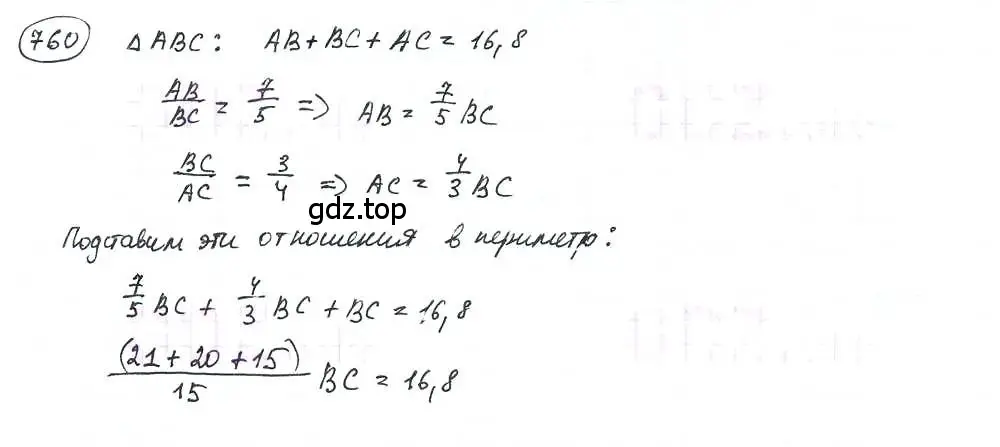 760 Δ ABC: AB + BC + AC = 16,8
AB/BC = 7/5 => AB = 7/5 BC
BC/AC = 3/4 => AC = 4/3 BC
gdz.top
Подставим эти отношения в периметр:
7/5 BC + 4/3 BC + BC = 16,8
(21 + 20 + 15)/15 BC = 16,8